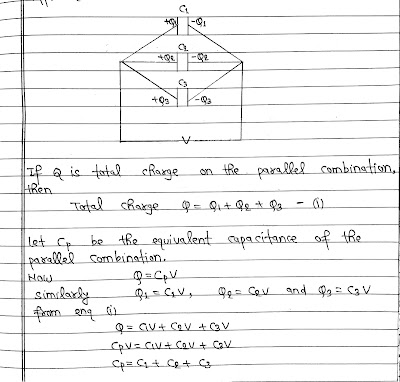 C1
+Q1 -Q1
C2
+Q2 -Q2
C3
+Q3 -Q3
V
If Q is total charge on the parallel combination,
then
Total charge Q = Q1 + Q2 + Q3 - (i)
Let Cp be the equivalent capacitance of the
parallel combination.
Now Q = CpV
similarly Q1 = C1V, Q2 = C2V and Q3 = C3V
from enq (i)
Q = C1V + C2V + C3V
CpV = C1V + C2V + C3V
Cp = C1 + C2 + C3